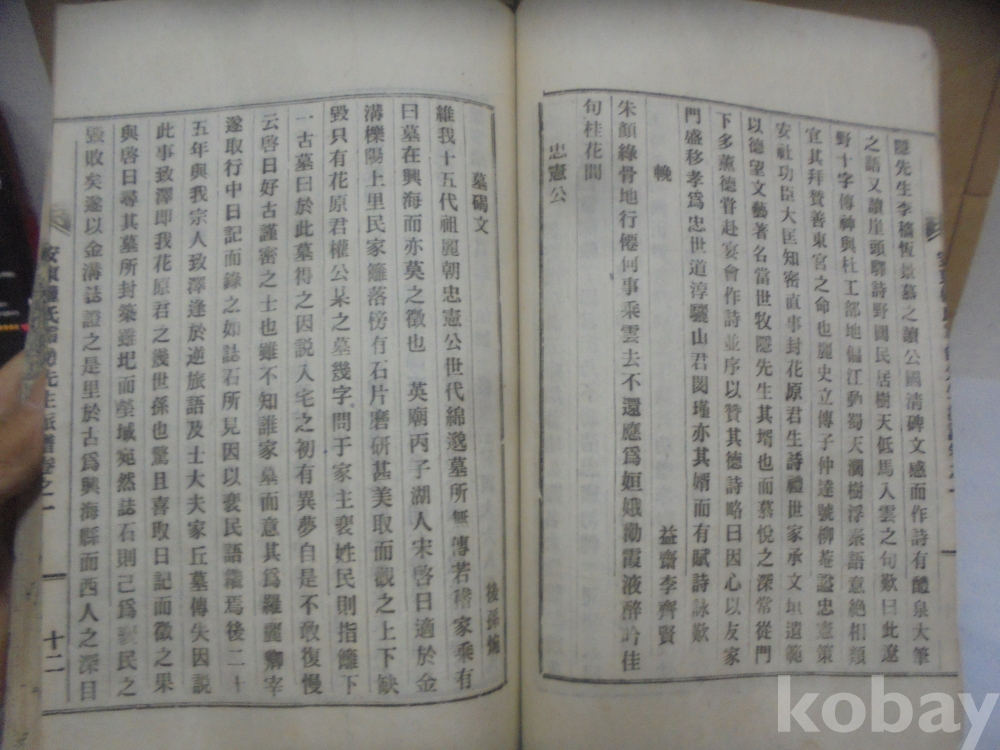 隱先生李穡恆景慕之讀公國清碑文感而作詩有醴泉大筆
之語又讀崖頭驛詩野國民居樹天低馬入雲之句歎曰此遼
野十字傳神與杜工部地偏江動蜀天濶樹浮秦語意絶相類
宜其拜贊善東宮之命也麗史立傳子仲達號柳菴諡忠憲策
安社功臣大匡知密直事封花原君生詩禮世家承文垣遺範
以德望文藝著名當世牧隱先生其壻也而慕悅之深常從門
下多薰德甞赴宴會作詩並序以贊其德詩略曰因心以友家
門盛移孝爲忠世道淳驪山君閔瑾亦其婿而有賦詩詠歎
輓 益齋李齊賢
朱顏綠骨地行僊何事乘雲去不還應爲姮娥泐霞液醉吟佳
句桂花間
忠憲公
墓碣文 後孫
維我十五代祖麗朝忠憲公世代綿邈墓所無傳若稽家乘有
曰墓在興海而亦莫之徵也 英廟丙子湖人宋啓日適於金
溝櫟陽上里民家籬落傍有石片磨研甚美取而觀之上下缺
毀只有花原君權公某之墓幾字問于家主裵姓民則指籬下
一古墓曰於此墓得之因説入宅之初有異夢自是不敢復慢
云啓日好古謹密之士也雖不知誰家墓而意其爲羅麗卿宰
遂取行中日記而錄之如誌石所見因以裵民語籬焉後二十
五年與我宗人致澤逢於逆旅語及士大夫家丘墓傳失因説
此事致澤即我花原君之幾世孫也驚且喜取日記而徵之果
與啓日尋其墓所封築雖圯而塋域宛然誌石則已爲裵民之
毀敗矣遂以金溝誌證之是里於古爲興海縣而西人之深目
安東權氏先生派譜卷之一 十二
kobay